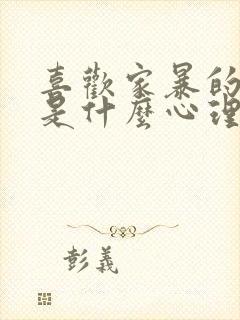 喜歡家暴的
是什麼心理
彭義